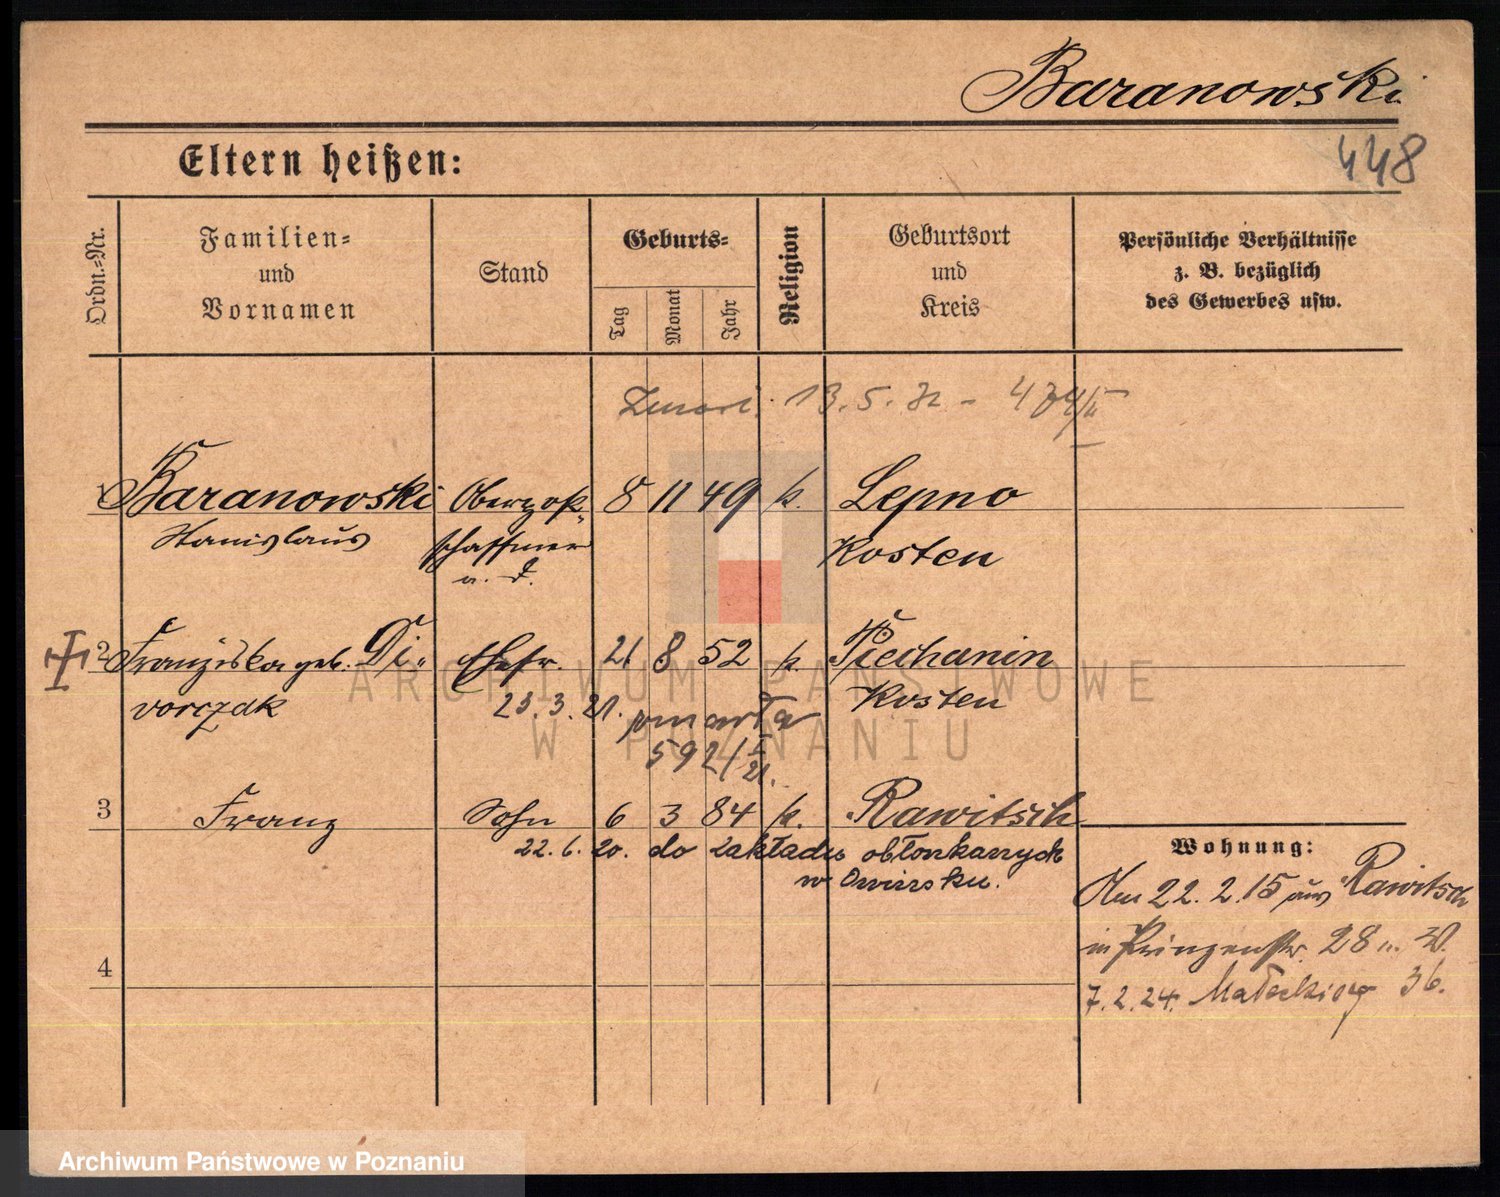 Baranowski
448
Eltern heißen:
Ordn.=Nr.
Familien=
und
Vornamen
Stand
Geburts=
Tag
Monat
Jahr
Religion
Geburtsort
und
Kreis
Persönliche Verhältnisse
z. B. bezüglich
des Gewerbes usw.
13.5.32 -
1 Baranowski Oberpost= 8 11 49 k. Lepno
Stanislaus schaffner Kosten
a. D.
2 Franziska geb. Di= Ehefr. 21 8 52 k. Piechanin
vorczak 23.3.21. zmarła Kosten
592/
3 Franz Sohn 6 3 84 k. Rawitsch
22.6.20. do zakładu obłonkanych
w Owinsku.
Wohnung:
Am 22.2.15 aus Rawitsch
in Prinzenstr. 28 W.
7.2.24. Małeckiego 36.
4
ARCHIWUM PAŃSTWOWE
W POZNANIU
Archiwum Państwowe w Poznaniu